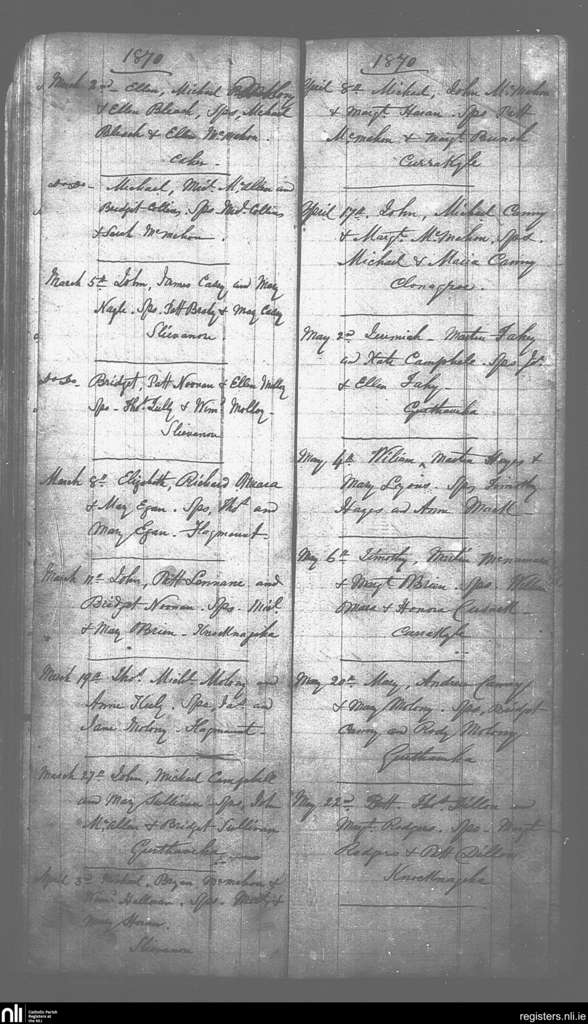 1870
March 2nd Ellen, Michael
& Ellen Bleach, Sps, Michael
Bleach & Ellen McMahon.
Caher
do do - Michael, Mich. McAllen and
Bridget Collins, Sps Mich. Collins
& Sarah McMahon.
March 5th John, James Casey and Mary
Nagle. Sps. Patt Brady & Mary Casey
Slievanore
do do Bridget, Patt Noonan & Ellen Molloy
Sps - Thos. Tully & Wm. Molloy -
Slievanore
March 8th Elizabeth, Richard OMeara
& Mary Egan. Sps, Thos. and
Mary Egan. Flagmount -
March 11th John, Patt Lennane and
Bridget Noonan. Sps. Mich.
& Mary OBrien. Knocknageha
March 19th Thos. Michl. Molony and
Annie Keely. Sps, Jas. and
Jane Molony. Flagmount -
March 27th John, Michael Campbell
and Mary Sullivan. Sps, John
McAllen & Bridget Sullivan
Gurthawha
April 3rd Michael. Bryan McMahon &
Sps.
Mary
Slievanore
1870
April 8th Michael, John McMahon
& Margt. Sps Patt
McMahon & Margt.
Currakyle
April 17th. John, Michael Canny
& Margt. McMahon. Sps.
Michael & Maria Canny
May 2nd Jeremiah - Martin Fahy
and Kate Campbele. Sps Jo.
& Ellen Fahy -
Gurthawha
May 4th William, Martin Hayes &
Mary Lyons. Sps, Timothy
Hayes and Anne
May 6th Timothy, Martin McNamara
& Margt OBrien. Sps. William
OMeara & Honora Cusack -
Currakyle
May 20th Mary, Andrew Canny
& Mary Molony. Sps, Bridget
Canny and Rody Molony
Gurthawha
May 22nd Patt Thos. Dillon and
Margt. Rodgers. Sps. Margt
Rodgers & Patt Dillon
Knocknageha
nli
Catholic Parish
Registers at
the NLI
registers.nli.ie